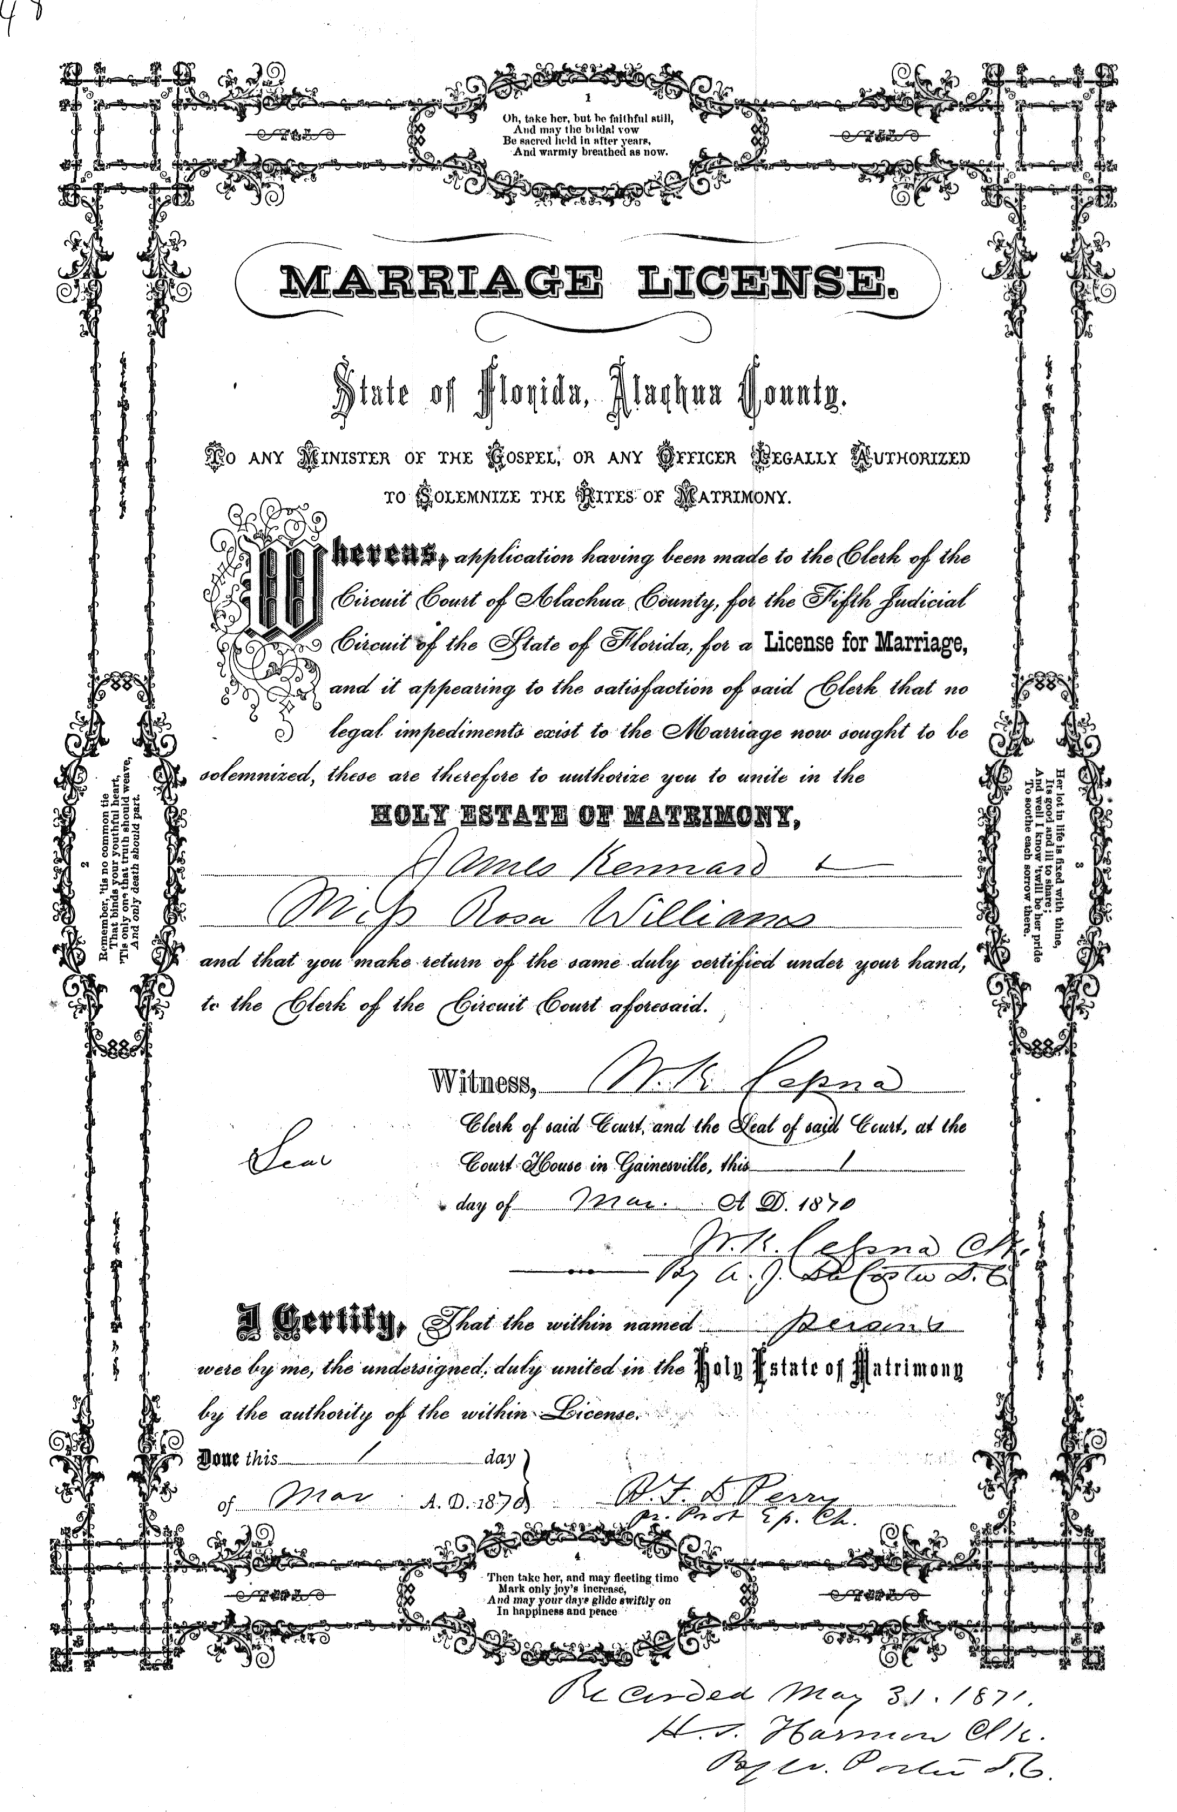 48
1
Oh, take her, but be faithful still,
And may the bridal vow
Be sacred held in after years,
And warmly breathed as now.
MARRIAGE LICENSE.
State of Florida, Alachua County.
TO ANY MINISTER OF THE GOSPEL, OR ANY OFFICER LEGALLY AUTHORIZED
TO SOLEMNIZE THE RITES OF MATRIMONY.
Whereas, application having been made to the Clerk of the
Circuit Court of Alachua County, for the Fifth Judicial
Circuit of the State of Florida, for a License for Marriage,
and it appearing to the satisfaction of said Clerk that no
legal impediments exist to the Marriage now sought to be
solemnized, these are therefore to authorize you to unite in the
HOLY ESTATE OF MATRIMONY,
James Kennard &
Miss Rosa Williams
and that you make return of the same duly certified under your hand,
to the Clerk of the Circuit Court aforesaid.
2
Remember, 'tis no common tie
That binds your youthful heart,
'Tis only one that truth should weave,
And only death should part.
3
Her lot in life is fixed with thine,
Its good and ill to share
And well I know 'twill be her pride
To soothe each sorrow there.
Witness, W. K. Cessna
Clerk of said Court, and the Seal of said Court, at the
Seal
Court House in Gainesville, this 1
day of Mar. A D. 1870
W. K. Cessna Clk.
By A. J. DaCosta D. C
I Certify, That the within named persons
were by me, the undersigned, duly united in the Holy Estate of Matrimony
by the authority of the within License.
Done this 1 day
of Mar A. D. 1870
Perry
Prot Ep. Ch.
4
Then take her, and may fleeting time
Mark only joy's increase,
And may your days glide swiftly on
In happiness and peace
Recorded May 31. 1871.
H. S. Harmon Clk.
By W. Porter D. C.